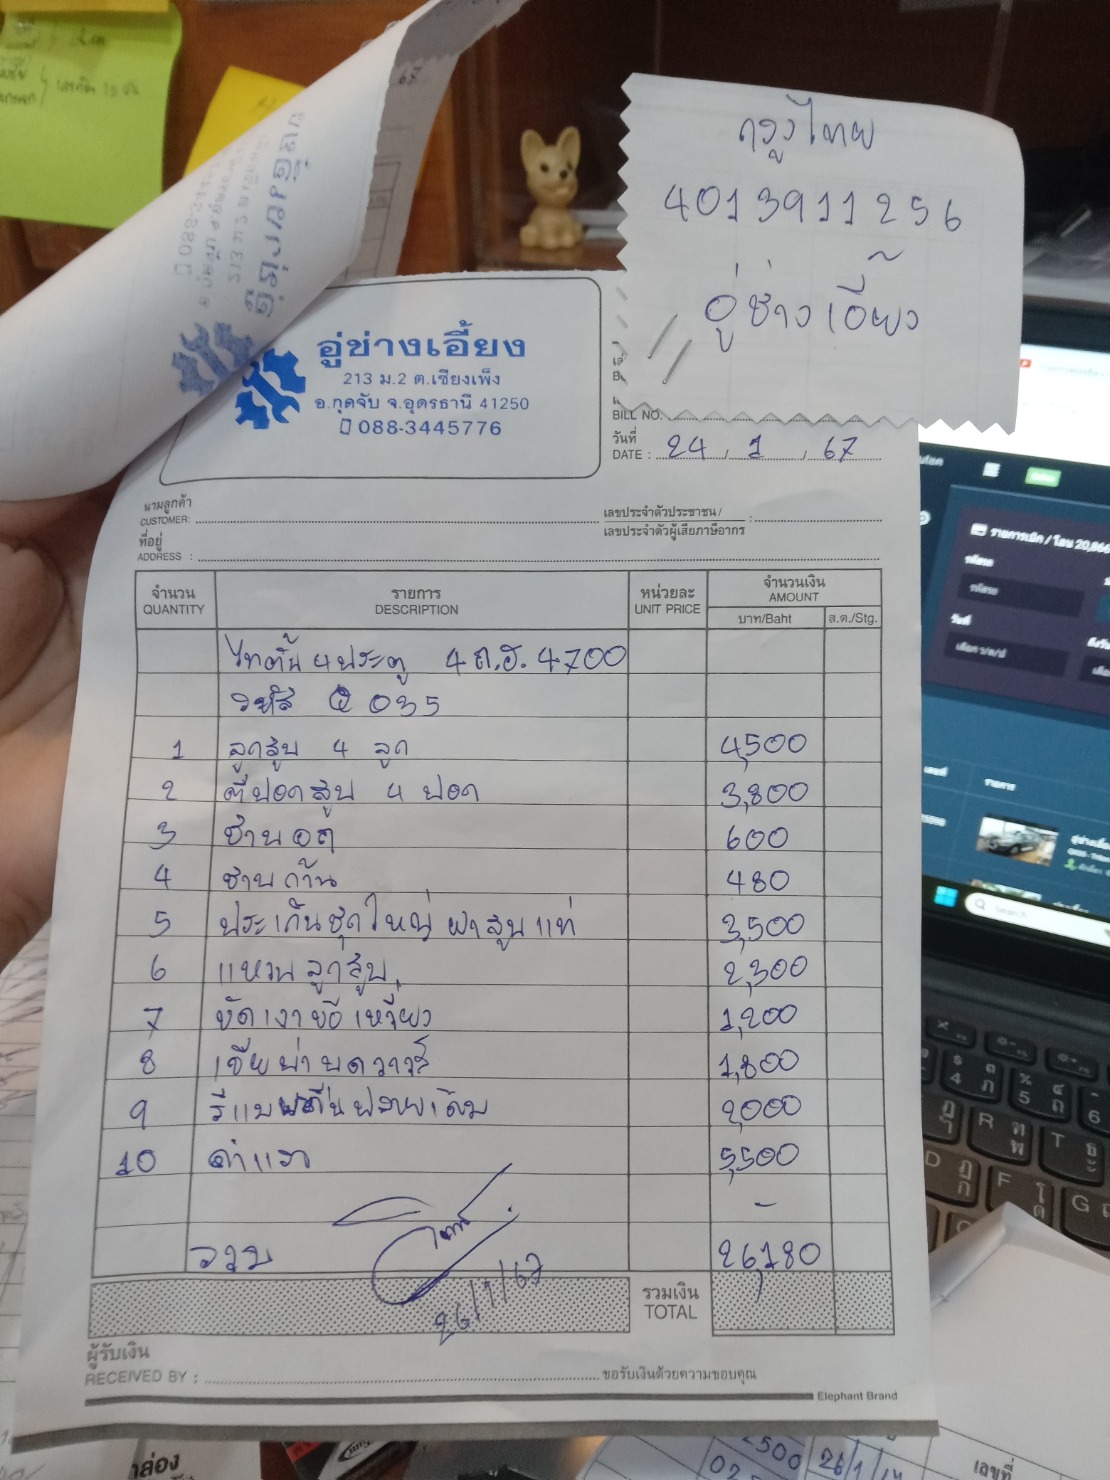 กรุงไทย
4013911256
อู่ช่างเอี้ยง
อู่ช่างเอี้ยง
213 ม.2 ต.เชียงเพ็ง
อ.กุดจับ จ.อุดรธานี 41250
088-3445776
BILL NO.
วันที่
DATE : 24 / 1 / 67
นามลูกค้า
CUSTOMER:
เลขประจำตัวประชาชน / :
เลขประจำตัวผู้เสียภาษีอากร
ที่อยู่
ADDRESS :
จำนวน รายการ หน่วยละ จำนวนเงิน
QUANTITY DESCRIPTION UNIT PRICE AMOUNT
บาท/Baht ส.ต./Stg.
ไทตั้น 4 ประตู 4 ถ.ฮ. 4700
รหัส Q 035
1 ลูกสูบ 4 ลูก 4,500
2 ตีปอกสูบ 4 ปอก 3,800
3 ชาบอก 600
4 ชาบก้าน 480
5 ประเก็นชุดใหญ่ ฝาสูบแท้ 3,500
6 แหวนลูกสูบ 2,300
7 ขัดเงาข้อเหวี่ยง 1,200
8 เจียบ่าบดวาวล์ 1,800
9 2,000
10 ค่าแรง 5,500
-
รวม 26,180
26/1/67
รวมเงิน
TOTAL
ผู้รับเงิน
RECEIVED BY : ขอรับเงินด้วยความขอบคุณ
Elephant Brand
รายการเบิก / โอน 20,866
รหัสรถ
วันที่
เลือก ว/ด/ป
รายการ
Search
กล่อง
2500
26/1/
เลขที่